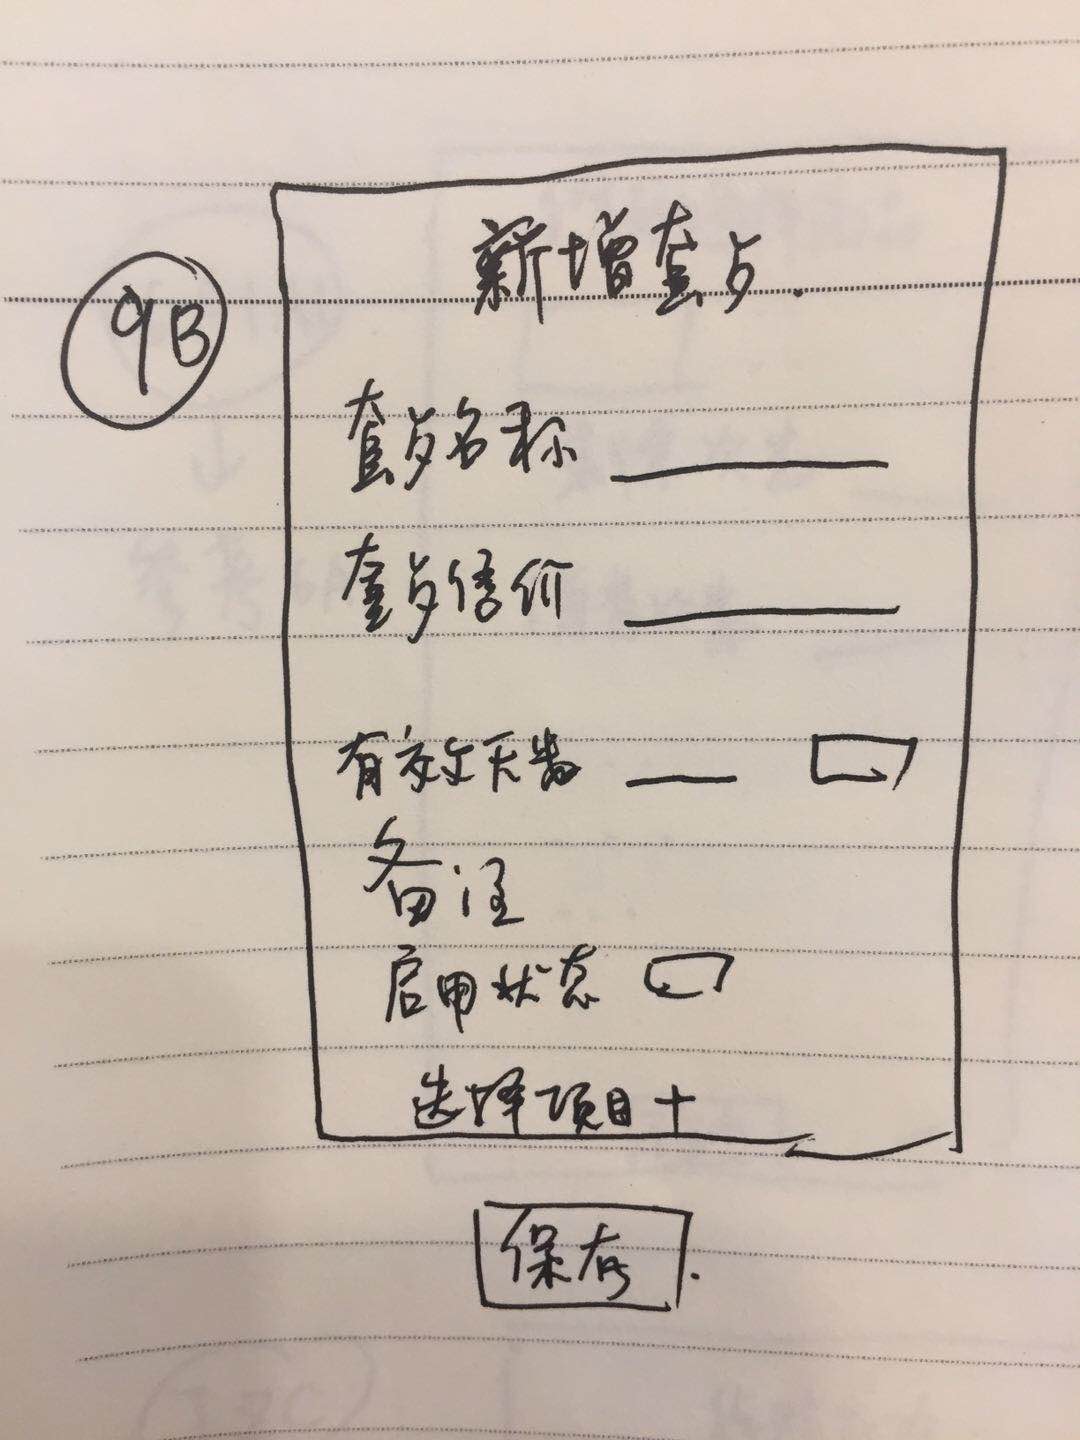 9B
新增套卡.
套卡名称
套卡售价
有效天数
备注
启用状态
选择项目+
保存.